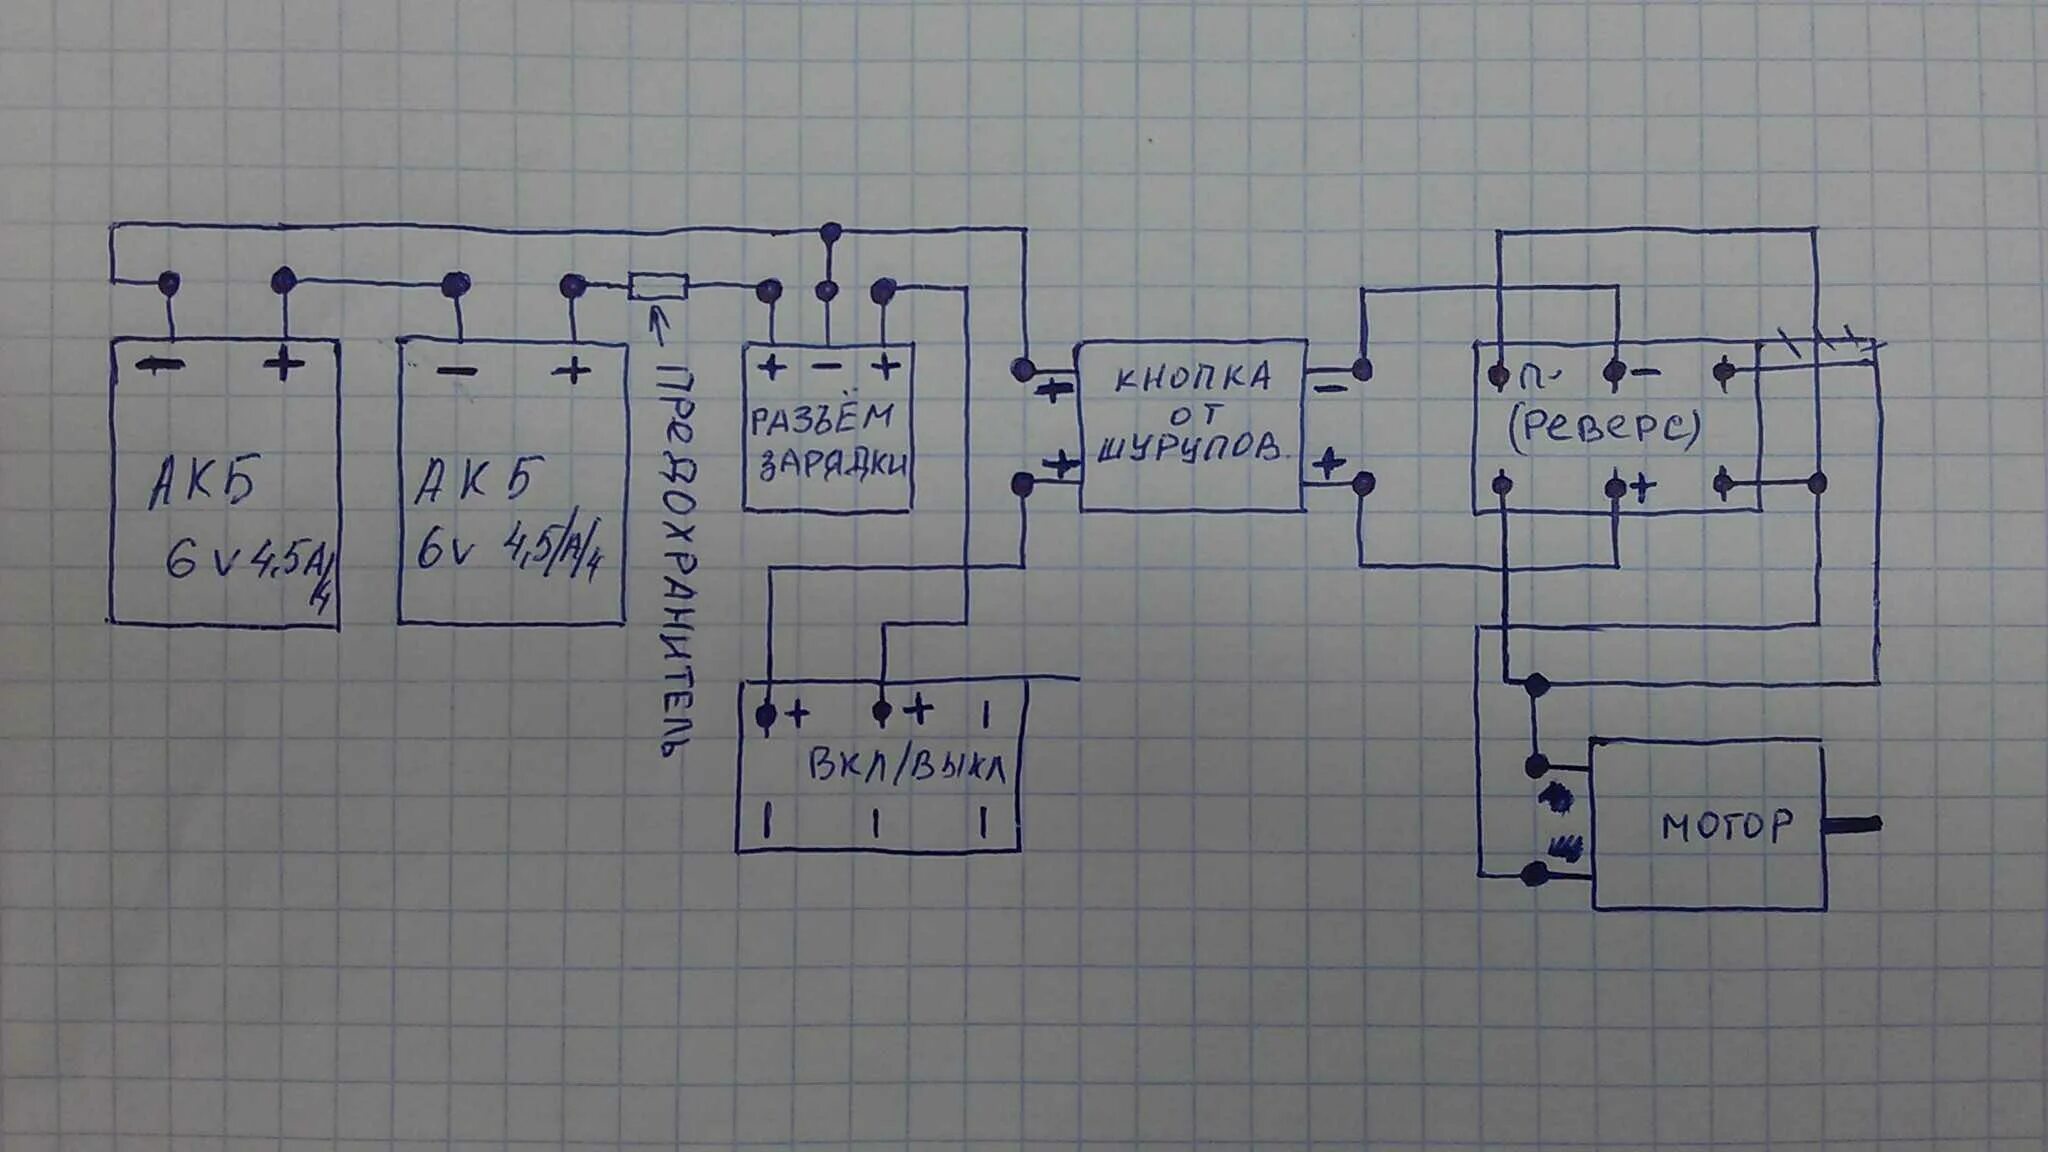 − +
АКБ
6v 4,5А/ч
− +
АКБ
6v 4,5/А/ч
ПРЕДОХРАНИТЕЛЬ
+ − +
РАЗЪЁМ
ЗАРЯДКИ
+ −
КНОПКА
ОТ
ШУРУПОВ.
+ +
П. −
(РЕВЕРС)
+
+ +
ВКЛ/ВЫКЛ
МОТОР